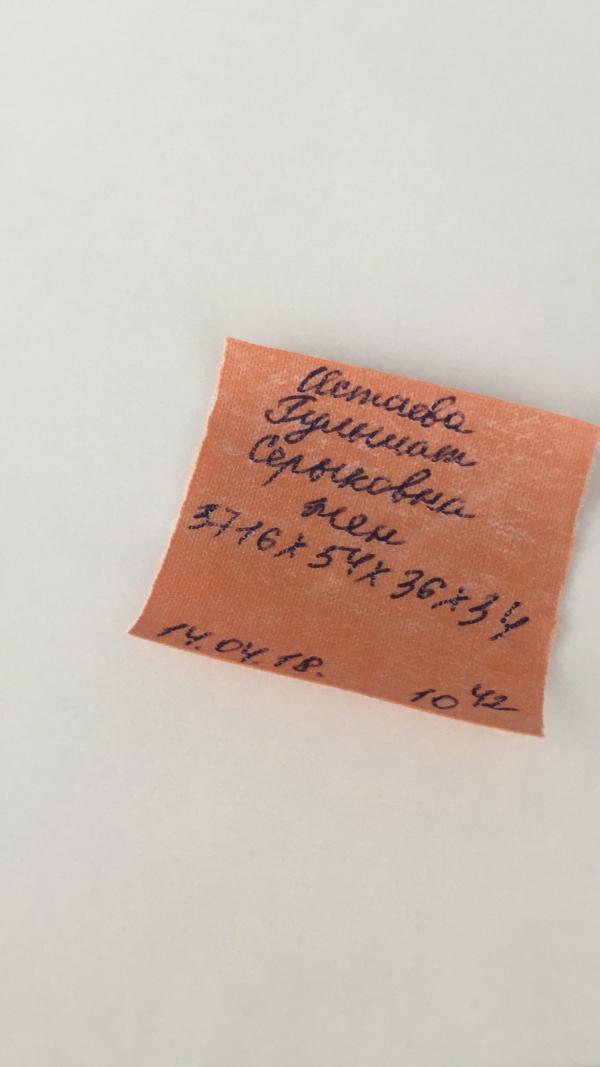 Истаева
Гульшат
Серыковна
жен
3716 х 54 х 36 х 34
14.04.18.
10 42